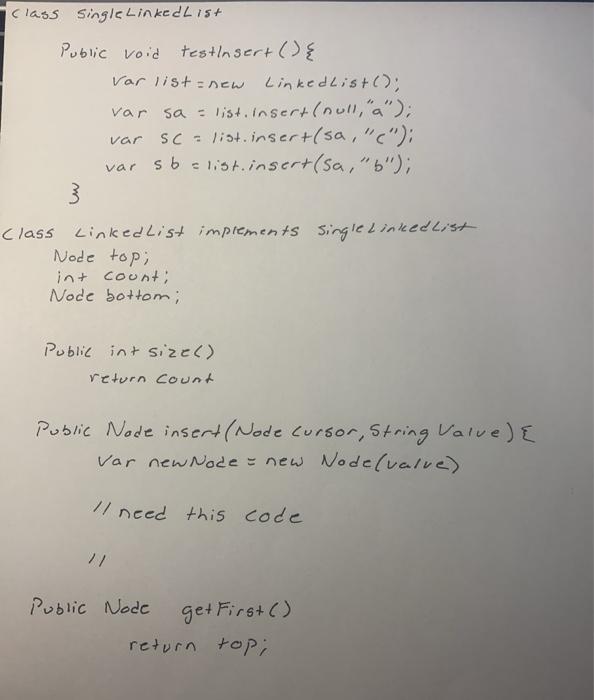 Class SingleLinkedList
Public void testInsert(){
Var list = new LinkedList();
var sa = list.insert(null,"a");
var sc = list.insert(sa, "c");
var sb = list.insert(sa, "b");
}
Class LinkedList implements SingleLinkedList
Node top;
int count;
Node bottom;
Public int size()
return count
Public Node insert(Node Cursor, String Value){
Var newNode = new Node(value)
// need this code
//
Public Node getFirst()
return top;